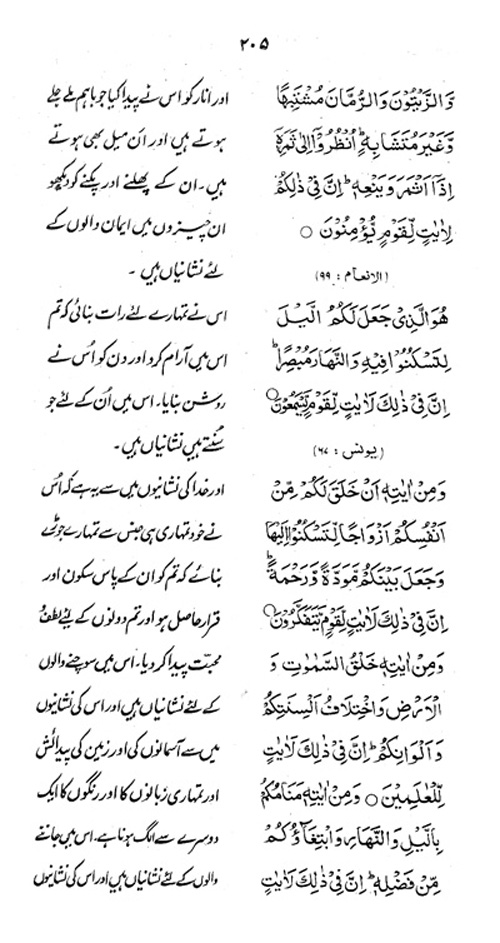 ۲۰۵
وَّالزَّيْتُوْنَ وَالرُّمَّانَ مُشْتَبِهًا
وَّغَيْرَ مُتَشَابِهٍ ؕ اُنْظُرُوْۤا اِلٰى ثَمَرِهٖۤ
اِذَاۤ اَثْمَرَ وَيَنْعِهٖ ؕ اِنَّ فِيْ ذٰلِكُمْ
لَاٰيٰتٍ لِّقَوْمٍ يُّؤْمِنُوْنَ ○
(الانعام : ۹۹)
هُوَ الَّذِيْ جَعَلَ لَكُمُ الَّيْلَ
لِتَسْكُنُوْا فِيْهِ وَالنَّهَارَ مُبْصِرًا ؕ
اِنَّ فِيْ ذٰلِكَ لَاٰيٰتٍ لِّقَوْمٍ يَّسْمَعُوْنَ ○
(یونس : ۶۷)
وَمِنْ اٰيٰتِهٖۤ اَنْ خَلَقَ لَكُمْ مِّنْ
اَنْفُسِكُمْ اَزْوَاجًا لِّتَسْكُنُوْۤا اِلَيْهَا
وَجَعَلَ بَيْنَكُمْ مَّوَدَّةً وَّرَحْمَةً ؕ
اِنَّ فِيْ ذٰلِكَ لَاٰيٰتٍ لِّقَوْمٍ يَّتَفَكَّرُوْنَ ○
وَمِنْ اٰيٰتِهٖ خَلْقُ السَّمٰوٰتِ وَ
الْاَرْضِ وَاخْتِلَافُ اَلْسِنَتِكُمْ
وَاَلْوَانِكُمْ ؕ اِنَّ فِيْ ذٰلِكَ لَاٰيٰتٍ
لِّلْعٰلِمِيْنَ ○ وَمِنْ اٰيٰتِهٖ مَنَامُكُمْ
بِالَّيْلِ وَالنَّهَارِ وَابْتِغَآؤُكُمْ
مِّنْ فَضْلِهٖ ؕ اِنَّ فِيْ ذٰلِكَ لَاٰيٰتٍ
اور انار کو اس نے پیدا کیا جو باہم ملے جلے
ہوتے ہیں اور اَن میل بھی ہوتے
ہیں۔ ان کے پھلنے اور پکنے کو دیکھو
ان چیزوں میں ایمان والوں کے
لئے نشانیاں ہیں ۔
اس نے تمہارے لئے رات بنائی کہ تم
اس میں آرام کرو اور دن کو اُس نے
روشن بنایا۔ اس میں اُن کے لئے جو
سُنتے ہیں نشانیاں ہیں ۔
اور خدا کی نشانیوں میں سے یہ ہے کہ اُس
نے خود تمہاری ہی جنس سے تمہارے جوڑے
بنائے کہ تم کو ان کے پاس سکون اور
قرار حاصل ہو اور تم دونوں کے لئے لطف و
محبّت پیدا کر دیا۔ اس میں سوچنے والوں
کے لئے نشانیاں ہیں اور اس کی نشانیوں
میں سے آسمانوں کی اور زمین کی پیدائش
اور تمہاری زبانوں کا اور رنگوں کا ایک
دوسرے سے الگ ہونا ہے۔ اس میں جاننے
والوں کے لئے نشانیاں ہیں اور اس کی نشانیوں